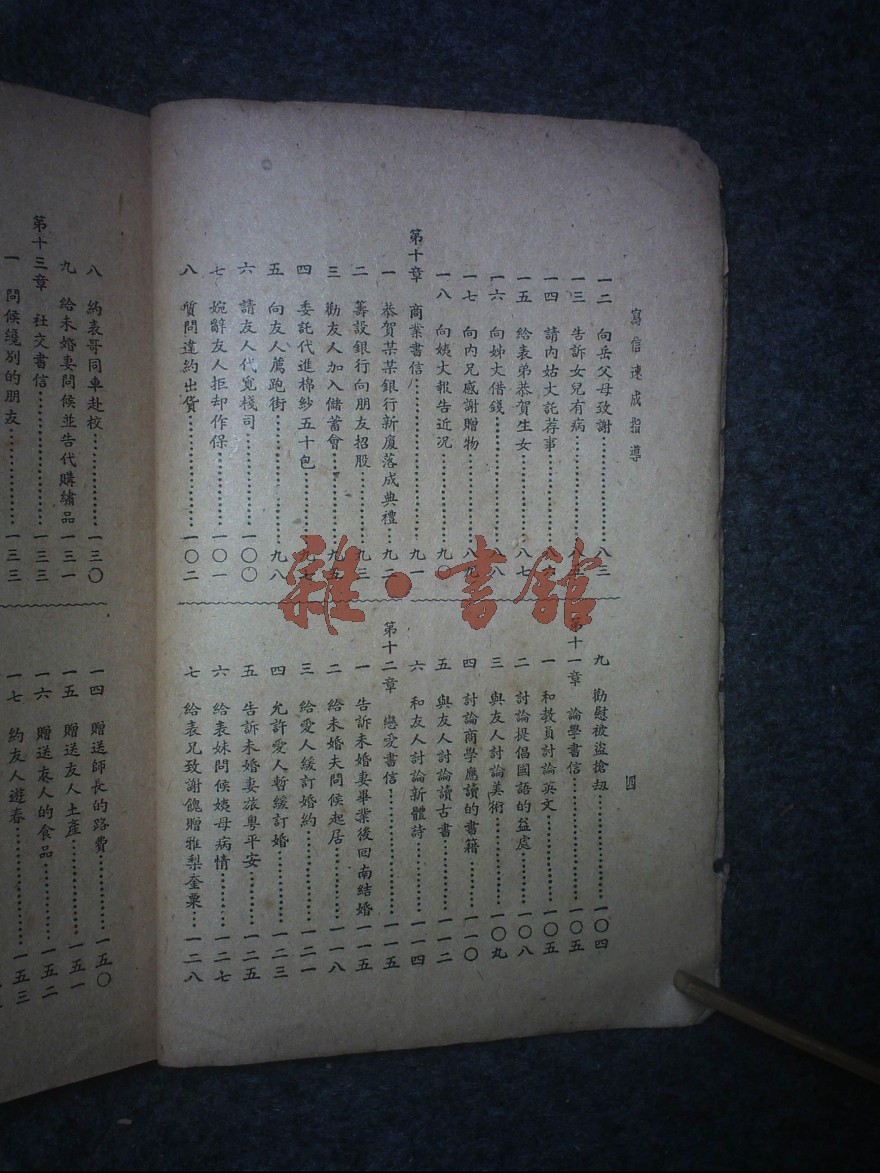 寫信速成指導
四
一二 向岳父母致謝……八三
一三 告訴女兒有病……八
一四 請內姑丈託荐事……八
一五 給表弟恭賀生女……八七
一六 向姊丈借錢……八八
一七 向內兄感謝贈物……八九
一八 向姨丈報告近況……九〇
第十章 商業書信……九一
一 恭賀某某銀行新廈落成典禮…九二
二 籌設銀行向朋友招股……九三
三 勸友人加入儲蓄會……九五
四 委託代進棉紗五十包……九七
五 向友人薦跑街……九八
六 請友人代覓棧司……一〇〇
七 婉辭友人拒却作保……一〇一
八 質問違約出貨……一〇二
九 勸慰被盜搶刼……一〇四
第十一章 論學書信……一〇五
一 和教員討論英文……一〇五
二 討論提倡國語的益處……一〇八
三 與友人討論美術……一〇九
四 討論商學應讀的書籍……一一〇
五 與友人討論讀古書……一一二
六 和友人討論新體詩……一一四
第十二章 戀愛書信……一一五
一 告訴未婚妻畢業後回南結婚 一一五
二 給未婚夫問候起居……一一八
三 給愛人緩訂婚約……一二一
四 允許愛人暫緩訂婚……一二三
五 告訴未婚妻旅粵平安……一二五
六 給表妹問候姨母病情……一二七
七 給表兄致謝餽贈雅梨奎栗…一二八
八 約表哥同車赴校……一三〇
九 給未婚妻問候並告代購繡品 一三一
第十三章 社交書信……一三三
一 問候闊別的朋友……一三三
一四 贈送師長的路費……一五〇
一五 贈送友人土產……一五一
一六 贈送友人的食品……一五二
一七 約友人遊春……一五三
雜·書館